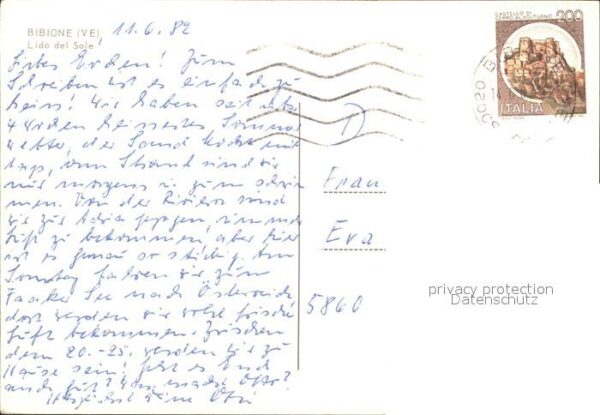 BIBIONE (VE)
Lido del Sole
11.6.82
Liebes Evchen! Zum
Schreiben ist es einfach zu
heiss! Wir haben seit
4 Wochen heissestes Sommer
wetter, der Sand kocht mit
tags, am Strand sind wir
nur morgens u. zum schwim
men. Von der Riviera sind
wir zur Adria gezogen, um mehr
Luft zu bekommen, aber hier
ist es genau so stickig. Am
Sonntag fahren wir zum
Faaker See nach Österreich,
dort werden wir wohl frische
Luft bekommen. Zwischen
dem 20.-25. werden wir zu
Hause sein! Geht es Euch
auch gut? Was macht Otto?
Herzlichst Deine
CASTELLO DI
CERRO AL VOLTURNO
200
ITALIA
D
Frau
Eva
5860
privacy protection
Datenschutz